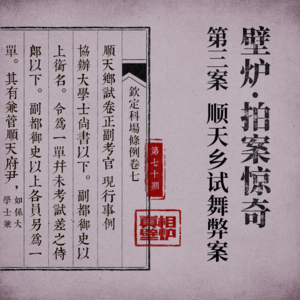 壁炉·拍案惊奇
第三案 顺天乡试舞弊案
欽定科場條例卷七
順天鄉試卷正副考官 現行事例
協辦大學士尚書以下。副都御史以
上銜名。令為一單并未考試差之侍
郎以下。副都御史以上各員另為一
單。其有兼管順天府尹，如係大
學士兼
第七十期
真相壁炉